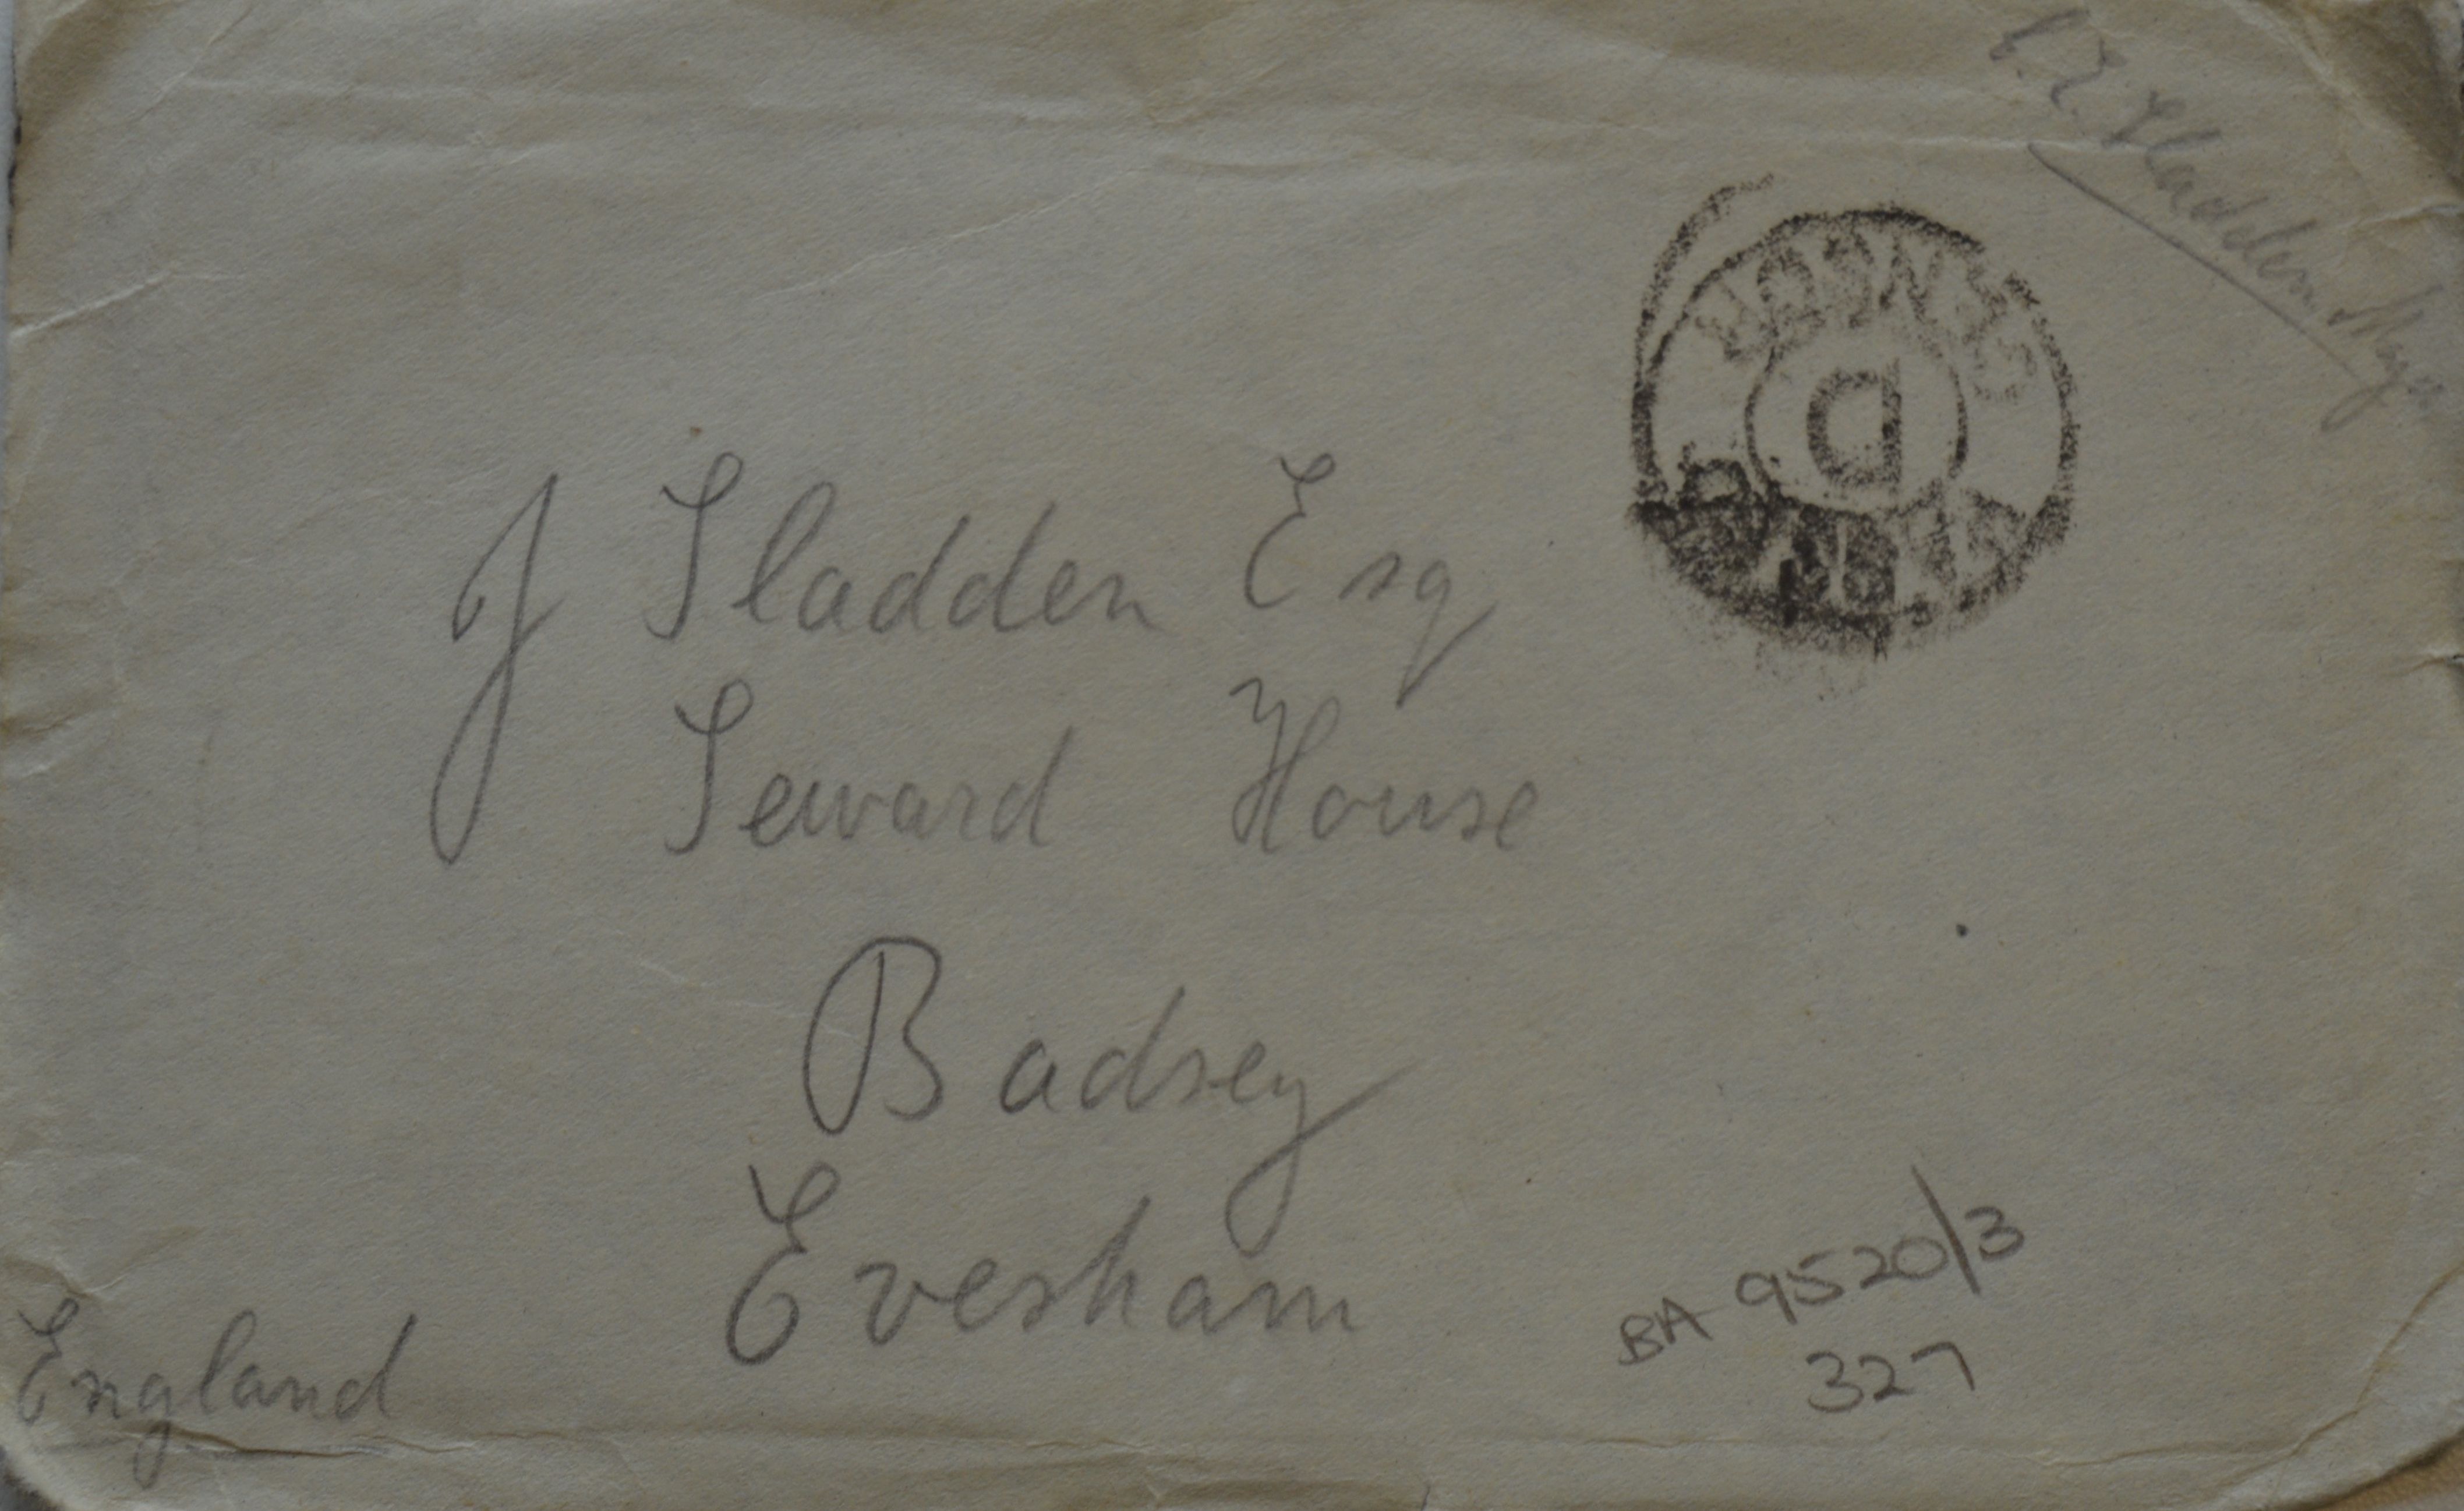 Sladden Major
CENSOR
D
J Sladden Esq
Seward House
Badsey
Evesham
England
BA 9520/3
327